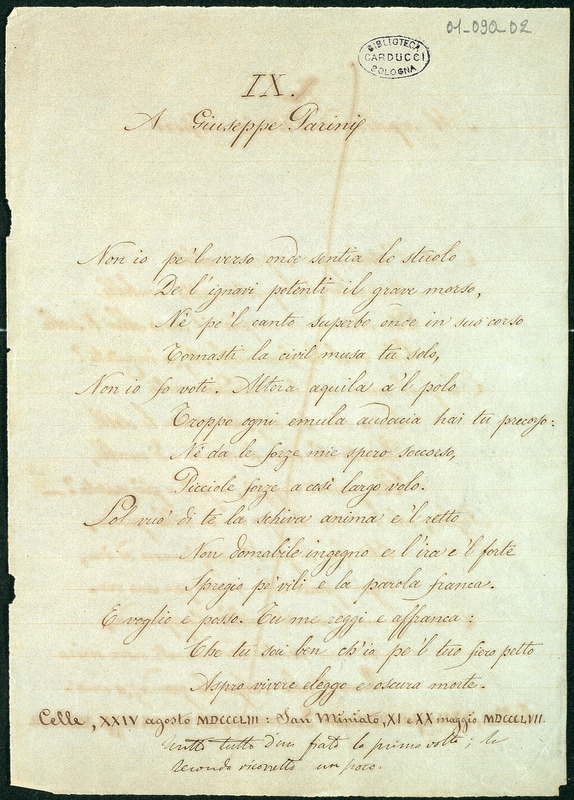 01-090-02
BIBLIOTECA
CARDUCCI
BOLOGNA
IX.
A Giuseppe Parini
Non io pe'l verso onde sentìa lo stuolo
De l'ignavi potenti il grave morso,
Nè pe'l canto superbo onde in suo corso
Tornasti la civil musa tu solo,
Non io fo voti. Altera aquila a'l polo
Troppo ogni emula audacia hai tu precorso:
Nè da le forze mie spero soccorso,
Picciole forze a così largo volo.
Sol vuo' di te la schiva anima e 'l retto
Non domabile ingegno e l'ira e 'l forte
Spregio pe' vili e la parola franca.
E voglio e posso. Tu me reggi e affranca:
Chè tu sai ben ch'io pe'l tuo fiero petto
Aspro vivere eleggo e oscura morte.
Celle, XXIV agosto MDCCCLIII: San Miniato, XI e XX maggio MDCCCLVII.
tutto d'un fiato la prima volta; la
seconda ricorretto un poco.